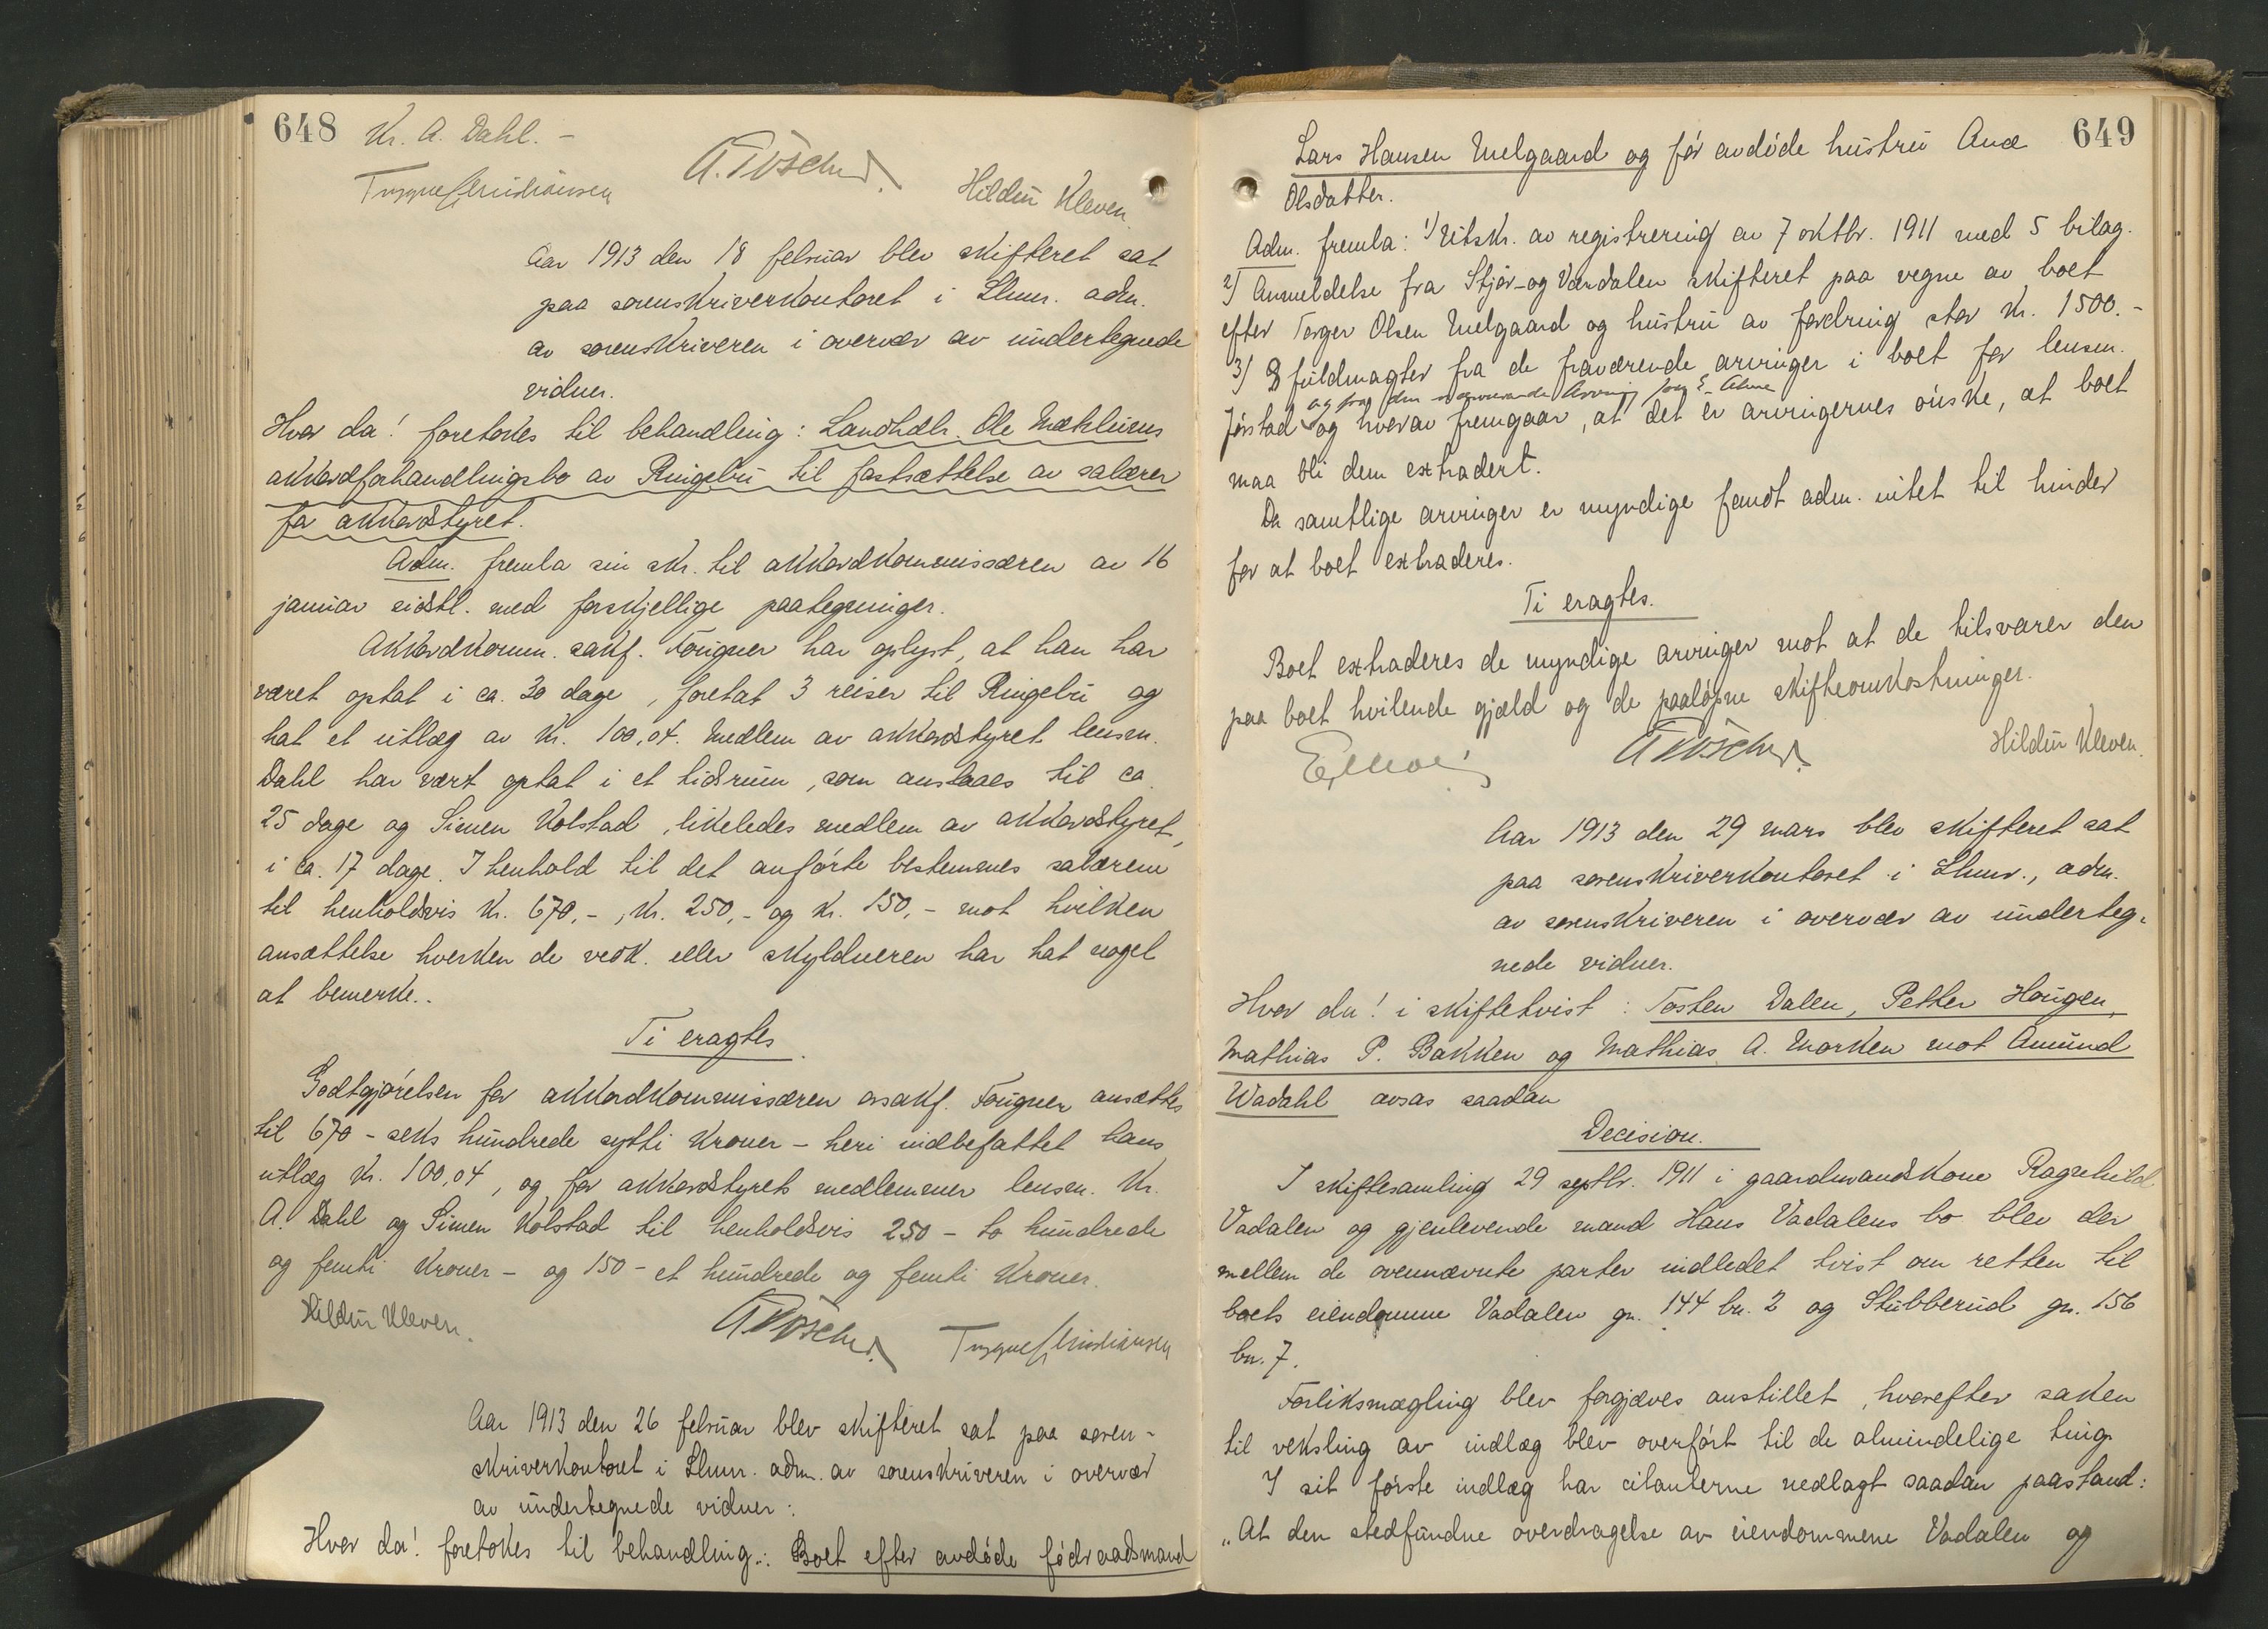 648 Kr. A. Dahl. -
Trygve Christiansen
Hildur Kleven
Aar 1913 den 18 februar blev skifteret sat
paa sorenskriverkontoret i Lhmr. adm.
av sorenskriveren i overvær av undertegnede
vidner.
Hvor da! foretokes til behandling: Landhdlr. Ole Mæhlums
akkordforhandlingsbo av Ringebu til fastsættelse av salærer
for akkordstyret.
Adm. fremla sin skr. til akkordkommissæren av 16
januar sidstl. med forskjellige paategninger.
Akkordkomm. sakf. Fougner har oplyst, at han har
været optat i ca. 30 dage, foretat 3 reiser til Ringebu og
hat et utlæg av kr. 100,04. Medlem av akkordstyret lensm.
Dahl har vært optat i et tidsrum, som anslaaes til ca.
25 dage og Simen Kolstad, likeledes medlem av akkordstyret,
i ca. 17 dage. I henhold til det anførte bestemmes salærene
til henholdsvis kr. 670,-, kr. 250,- og kr. 150,- mot hvilken
ansættelse hverken de vedk. eller skyldneren har hat noget
at bemerke..
Ti eragtes
Godtgjørelsen for akkordkommissæren osakf. Fougner ansættes
til 670 - seks hundrede sytti kroner - heri indbefattet hans
utlæg kr. 100,04, og for akkordstyrets medlemmer lensm. Kr.
A. Dahl og Simen Kolstad til henholdsvis 250 - to hundrede
og femti kroner - og 150 - et hundrede og femti kroner.
Hildur Kleven.
Trygve Christiansen
Aar 1913 den 26 februar blev skifteret sat paa soren-
skriverkontoret i Lhmr. adm. av sorenskriveren i overvær
av undertegnede vidner:
Hvor da! foretokes til behandling.: Boet efter avdøde føderaadsmand
649
Lars Hansen Melgaard og før avdøde hustru Ane
Olsdatter.
Adm. fremla: 1) Utskr. av registrering av 7 oktbr. 1911 med 5 bilag.
2) Anmeldelse fra Stjør- og Værdalen skifteret paa vegne av boet
efter Torger Olsen Melgaard og hustru av fordring stor kr. 1500.-
3) 8 fuldmagter fra de fraværende arvinger i boet for lensm.
og fra den nærværende Arving
Jørstad og hvorav fremgaar, at det er arvingernes ønske, at boet
maa bli dem extradert.
Da samtlige arvinger er myndige fandt adm. intet til hinder
for at boet extraderes.
Ti eragtes.
Boet extraderes de myndige arvinger mot at de tilsvarer den
paa boet hvilende gjæld og de paaløpne skifteomkostninger.
Hildur Kleven.
Aar 1913 den 29 mars blev skifteret sat
paa sorenskriverkontoret i Lhmr., adm.
av sorenskriveren i overvær av underteg-
nede vidner.
Hvor da! i skiftetvist: Tosten Dalen, Petter Haugen,
Mathias P. Bakken og Mathias A. Morken mot Amund
Wadahl avsas saadan
Decision.
I skiftesamling 29 septbr. 1911 i gaardmandskone Ragnhild
Vadalen og gjenlevende mand Hans Vadalens bo blev der
mellem de ovennævnte parter indledet tvist om retten til
boets eiendomme Vadalen gn. 144 bn. 2 og Stubberud gn. 156
bn. 7.
Forliksmægling blev forgjæves anstillet, hvorefter saken
til veksling av indlæg blev overført til de almindelige ting.
I sit første indlæg har citanterne nedlagt saadan paastand:
„At den stedfundne overdragelse av eiendommene Vadalen og